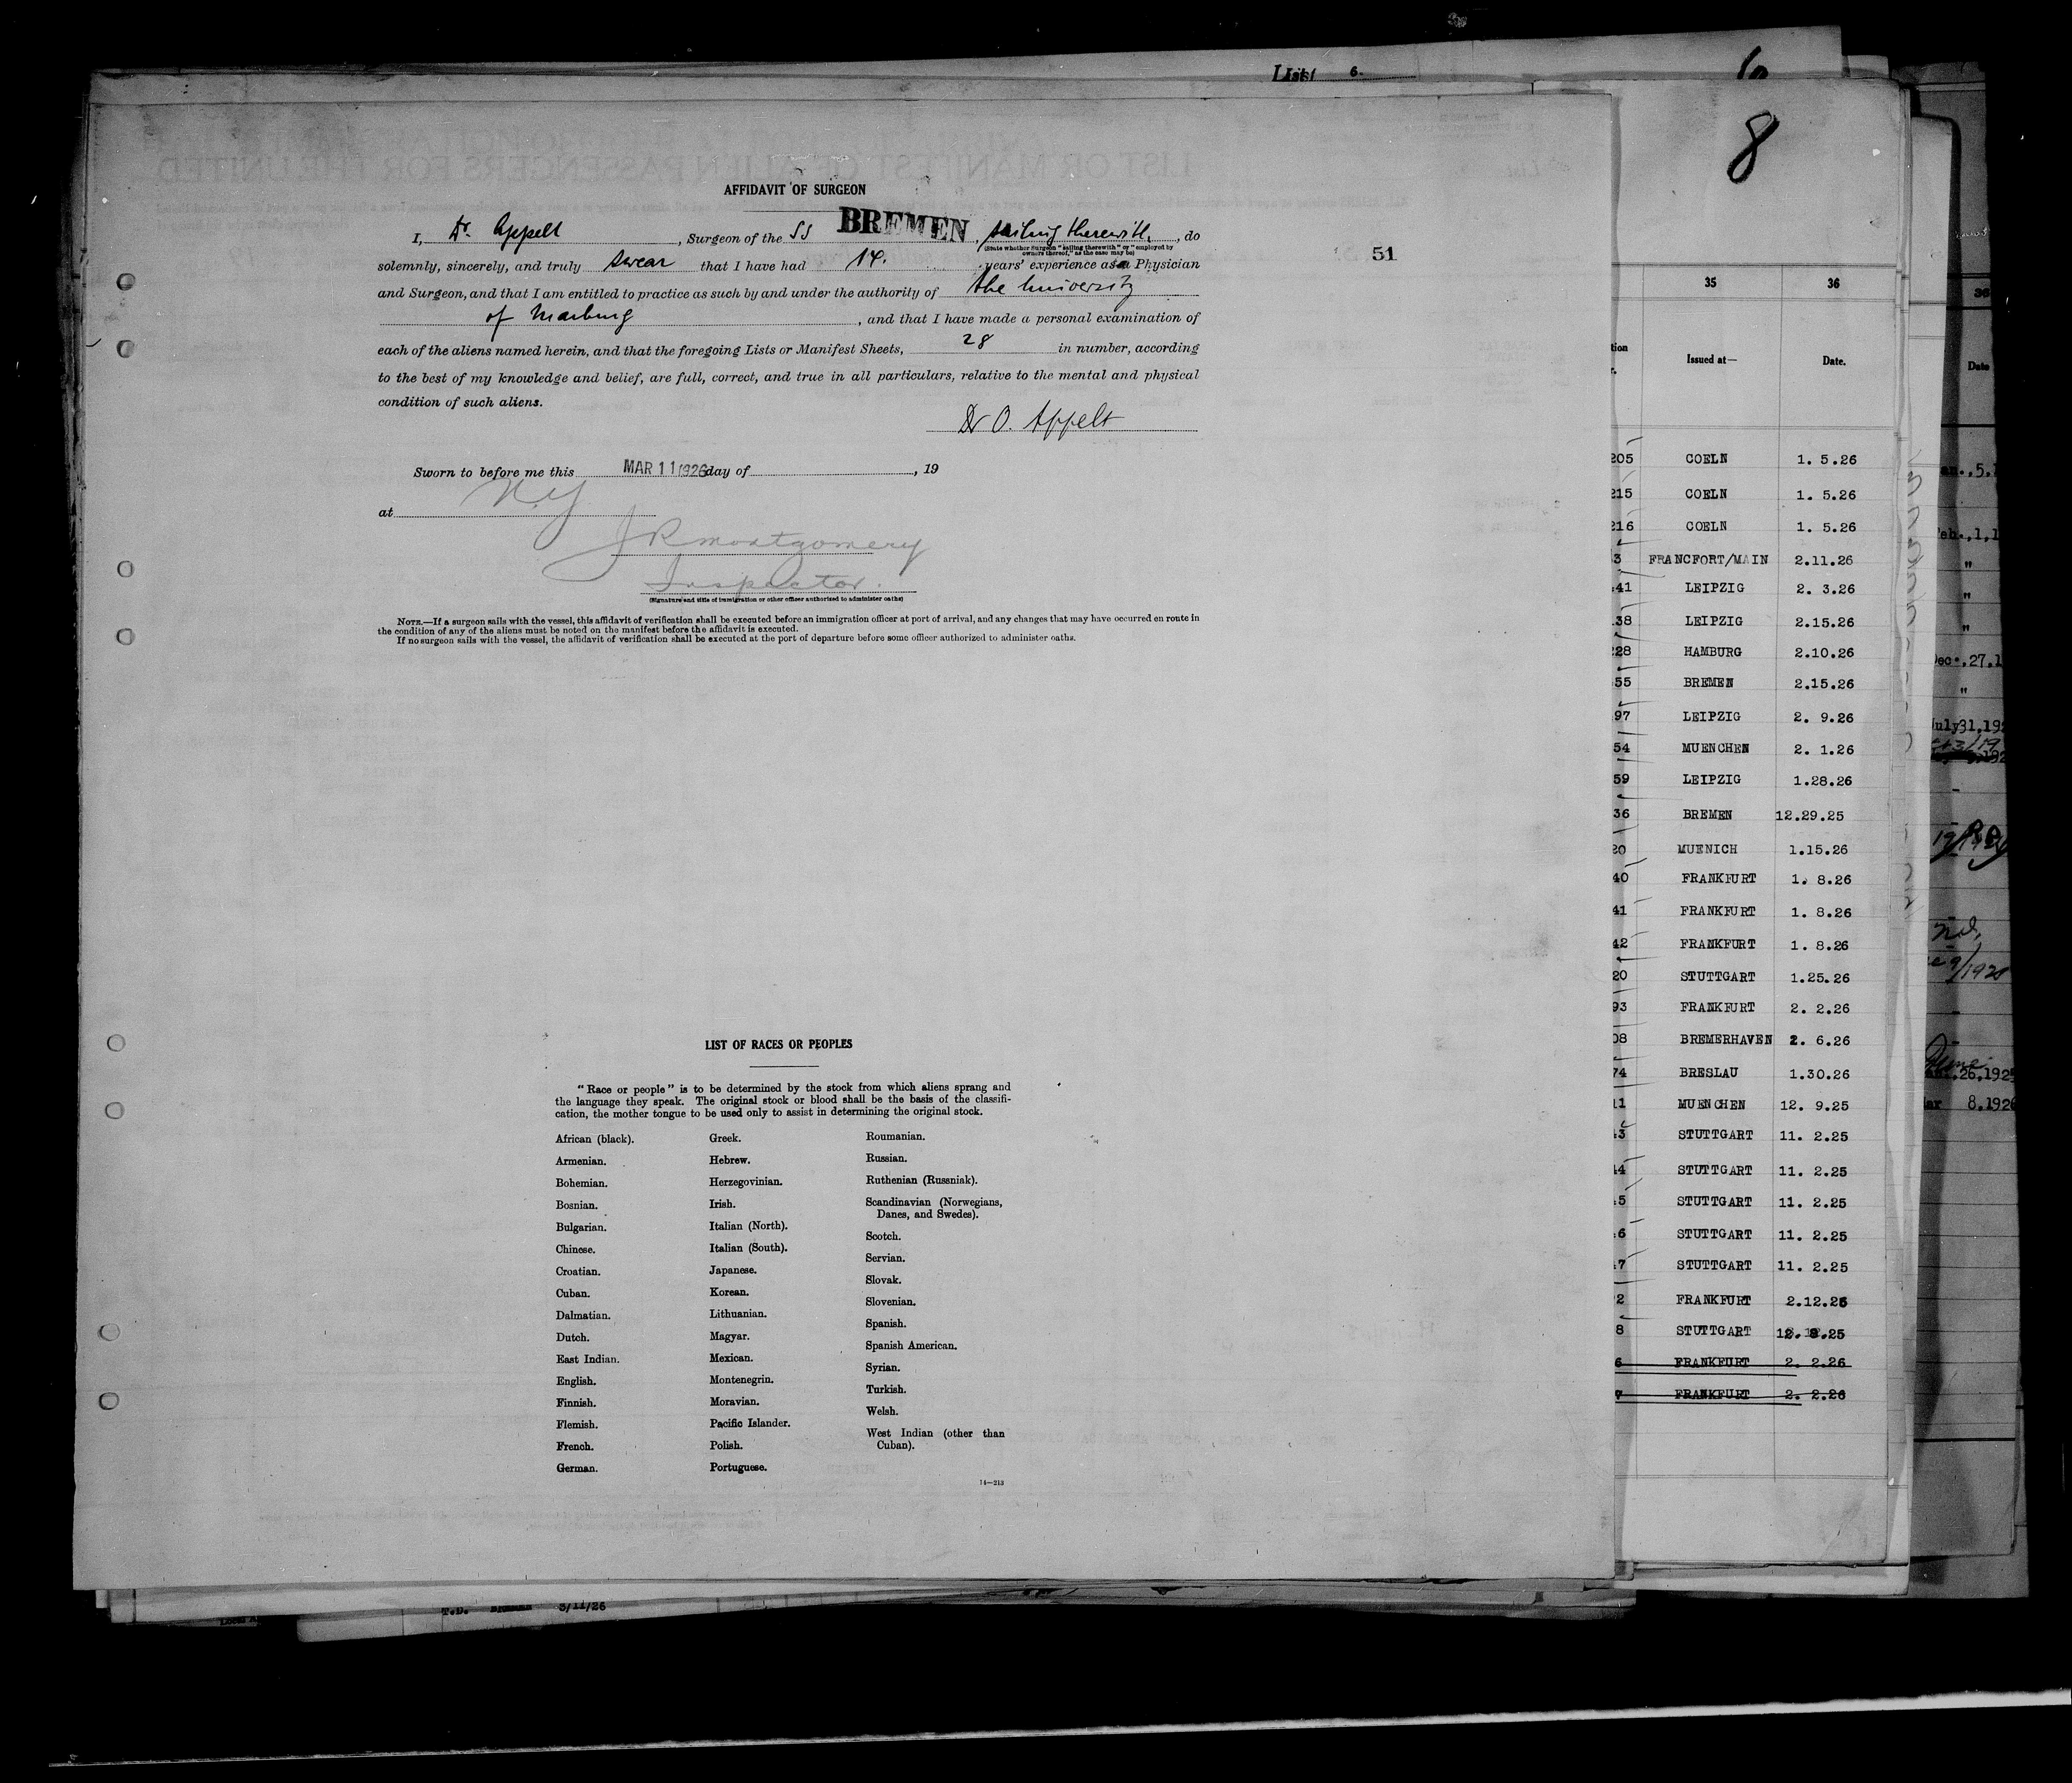 List 6.
8
AFFIDAVIT OF SURGEON
I, Dr. Appelt, Surgeon of the SS BREMEN, sailing therewith, do
(State whether Surgeon "sailing therewith" or "employed by owners thereof," as the case may be)
solemnly, sincerely, and truly swear that I have had 14. years' experience as a Physician
and Surgeon, and that I am entitled to practice as such by and under the authority of the University
of Marburg, and that I have made a personal examination of
each of the aliens named herein, and that the foregoing Lists or Manifest Sheets, 28 in number, according
to the best of my knowledge and belief, are full, correct, and true in all particulars, relative to the mental and physical
condition of such aliens.
Dr O. Appelt
Sworn to before me this MAR 11 1926 day of , 19
at N.Y
J R Montgomery
Inspector.
(Signature and title of immigration or other officer authorized to administer oaths)
NOTE.—If a surgeon sails with the vessel, this affidavit of verification shall be executed before an immigration officer at port of arrival, and any changes that may have occurred en route in
the condition of any of the aliens must be noted on the manifest before the affidavit is executed.
If no surgeon sails with the vessel, the affidavit of verification shall be executed at the port of departure before some officer authorized to administer oaths.
51
LIST OF RACES OR PEOPLES
"Race or people" is to be determined by the stock from which aliens sprang and
the language they speak. The original stock or blood shall be the basis of the classifi-
cation, the mother tongue to be used only to assist in determining the original stock.
African (black).
Armenian.
Bohemian.
Bosnian.
Bulgarian.
Chinese.
Croatian.
Cuban.
Dalmatian.
Dutch.
East Indian.
English.
Finnish.
Flemish.
French.
German.
Greek.
Hebrew.
Herzegovinian.
Irish.
Italian (North).
Italian (South).
Japanese.
Korean.
Lithuanian.
Magyar.
Mexican.
Montenegrin.
Moravian.
Pacific Islander.
Polish.
Portuguese.
Roumanian.
Russian.
Ruthenian (Russniak).
Scandinavian (Norwegians,
Danes, and Swedes).
Scotch.
Servian.
Slovak.
Slovenian.
Spanish.
Spanish American.
Syrian.
Turkish.
Welsh.
West Indian (other than
Cuban).
14—213
35 36
Issued at— Date.
205 COELN 1. 5.26
215 COELN 1. 5.26
216 COELN 1. 5.26
3 FRANCFORT/MAIN 2.11.26
41 LEIPZIG 2. 3.26
38 LEIPZIG 2.15.26
28 HAMBURG 2.10.26
55 BREMEN 2.15.26
97 LEIPZIG 2. 9.26
54 MUENCHEN 2. 1.26
59 LEIPZIG 1.28.26
36 BREMEN 12.29.25
20 MUENICH 1.15.26
40 FRANKFURT 1. 8.26
41 FRANKFURT 1. 8.26
42 FRANKFURT 1. 8.26
20 STUTTGART 1.25.26
93 FRANKFURT 2. 2.26
08 BREMERHAVEN 2. 6.26
74 BRESLAU 1.30.26
11 MUENCHEN 12. 9.25
3 STUTTGART 11. 2.25
44 STUTTGART 11. 2.25
5 STUTTGART 11. 2.25
6 STUTTGART 11. 2.25
7 STUTTGART 11. 2.25
2 FRANKFURT 2.12.26
8 STUTTGART
6 FRANKFURT 2. 2.26
7 FRANKFURT 2. 2.26
36
Date
5.
1,1
"
"
"
Dec.,27,1
"
July31,19
26,192
8.192
3/11/26